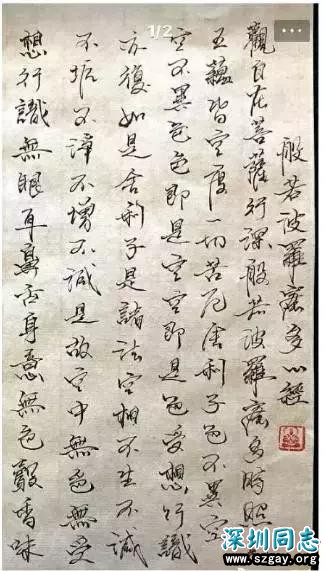 1/2
般若波羅蜜多心經
觀自在菩薩行深般若波羅蜜多時照
五蘊皆空度一切苦厄舍利子色不異空
空不異色色即是空空即是色受想行識
亦復如是舍利子是諸法空相不生不滅
不垢不淨不增不減是故空中無色無受
想行識無眼耳鼻舌身意無色聲香味
深圳同志
www.szgay.org